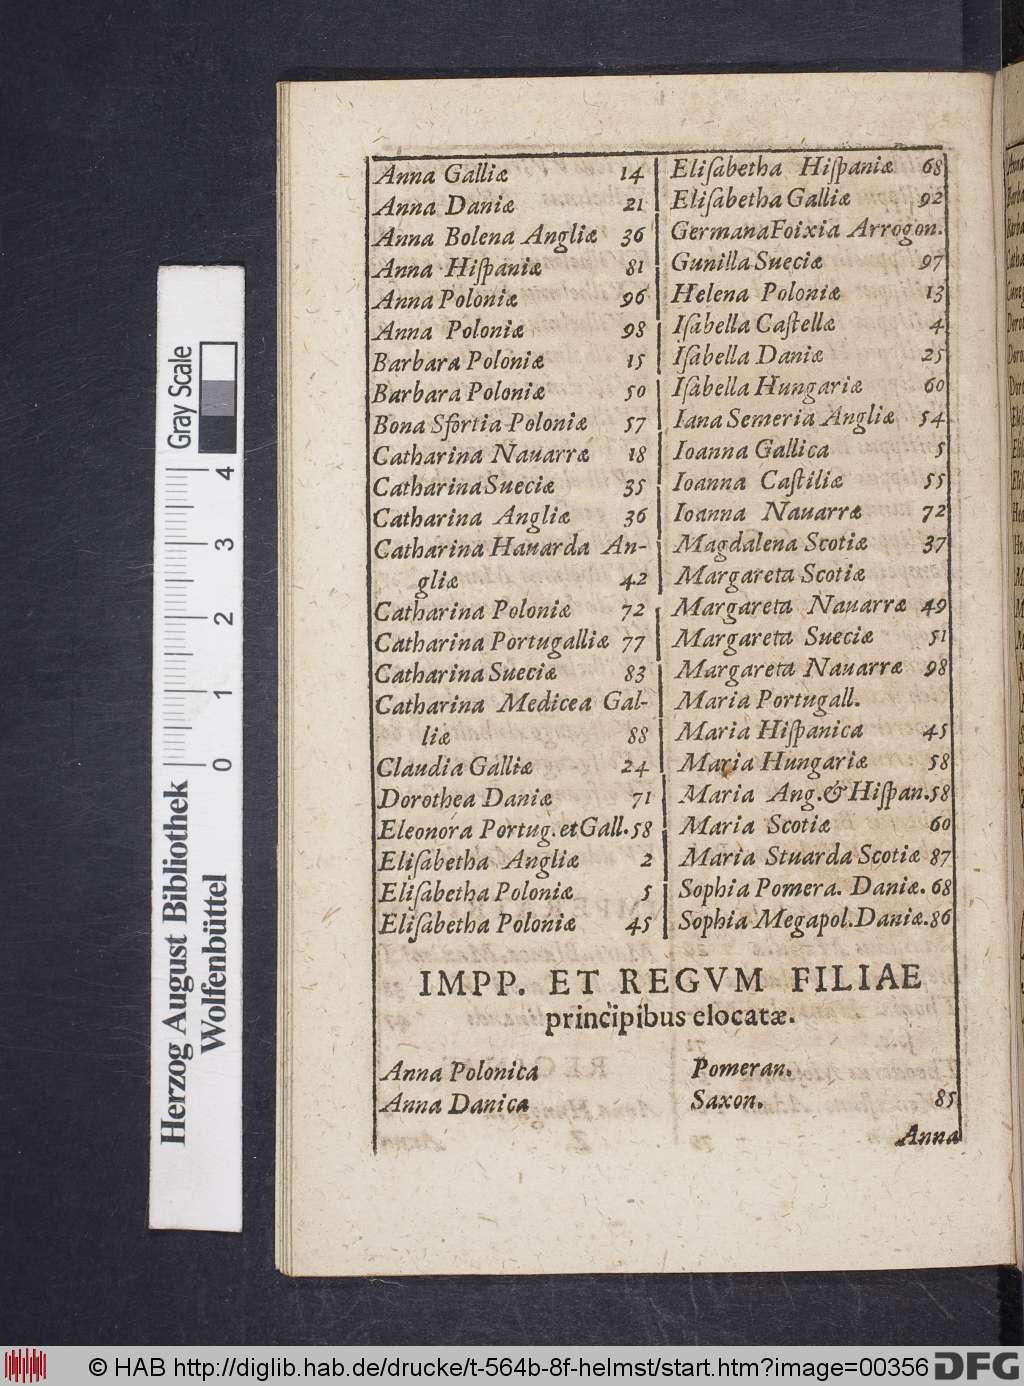 Anna Galliæ 14
Anna Daniæ 21
Anna Bolena Angliæ 36
Anna Hiſpaniæ 81
Anna Poloniæ 96
Anna Poloniæ 98
Barbara Poloniæ 15
Barbara Poloniæ 50
Bona Sfortia Poloniæ 57
Catharina Nauarræ 18
Catharina Sueciæ 35
Catharina Angliæ 36
Catharina Hauarda An-
gliæ 42
Catharina Poloniæ 72
Catharina Portugalliæ 77
Catharina Sueciæ 83
Catharina Medicea Gal-
liæ 88
Claudia Galliæ 24
Dorothea Daniæ 71
Eleonora Portug. et Gall. 58
Eliſabetha Angliæ 2
Eliſabetha Poloniæ 5
Eliſabetha Poloniæ 45
Eliſabetha Hiſpaniæ 68
Eliſabetha Galliæ 92
Germana Foixia Arrogon.
Gunilla Sueciæ 97
Helena Poloniæ 13
Iſabella Caſtellæ 4
Iſabella Daniæ 25
Iſabella Hungariæ 60
Iana Semeria Angliæ 54
Ioanna Gallica 5
Ioanna Caſtiliæ 55
Ioanna Nauarræ 72
Magdalena Scotiæ 37
Margareta Scotiæ
Margareta Nauarræ 49
Margareta Sueciæ 51
Margareta Nauarræ 98
Maria Portugall.
Maria Hiſpanica 45
Maria Hungariæ 58
Maria Ang. & Hiſpan. 58
Maria Scotiæ 60
Maria Stuarda Scotiæ 87
Sophia Pomera. Daniæ. 68
Sophia Megapol. Daniæ. 86
IMPP. ET REGVM FILIAE
principibus elocatæ.
Anna Polonica Pomeran.
Anna Danica Saxon. 85
Anna
Gray Scale
0 1 2 3 4
Herzog August Bibliothek
Wolfenbüttel
© HAB http://diglib.hab.de/drucke/t-564b-8f-helmst/start.htm?image=00356
DFG